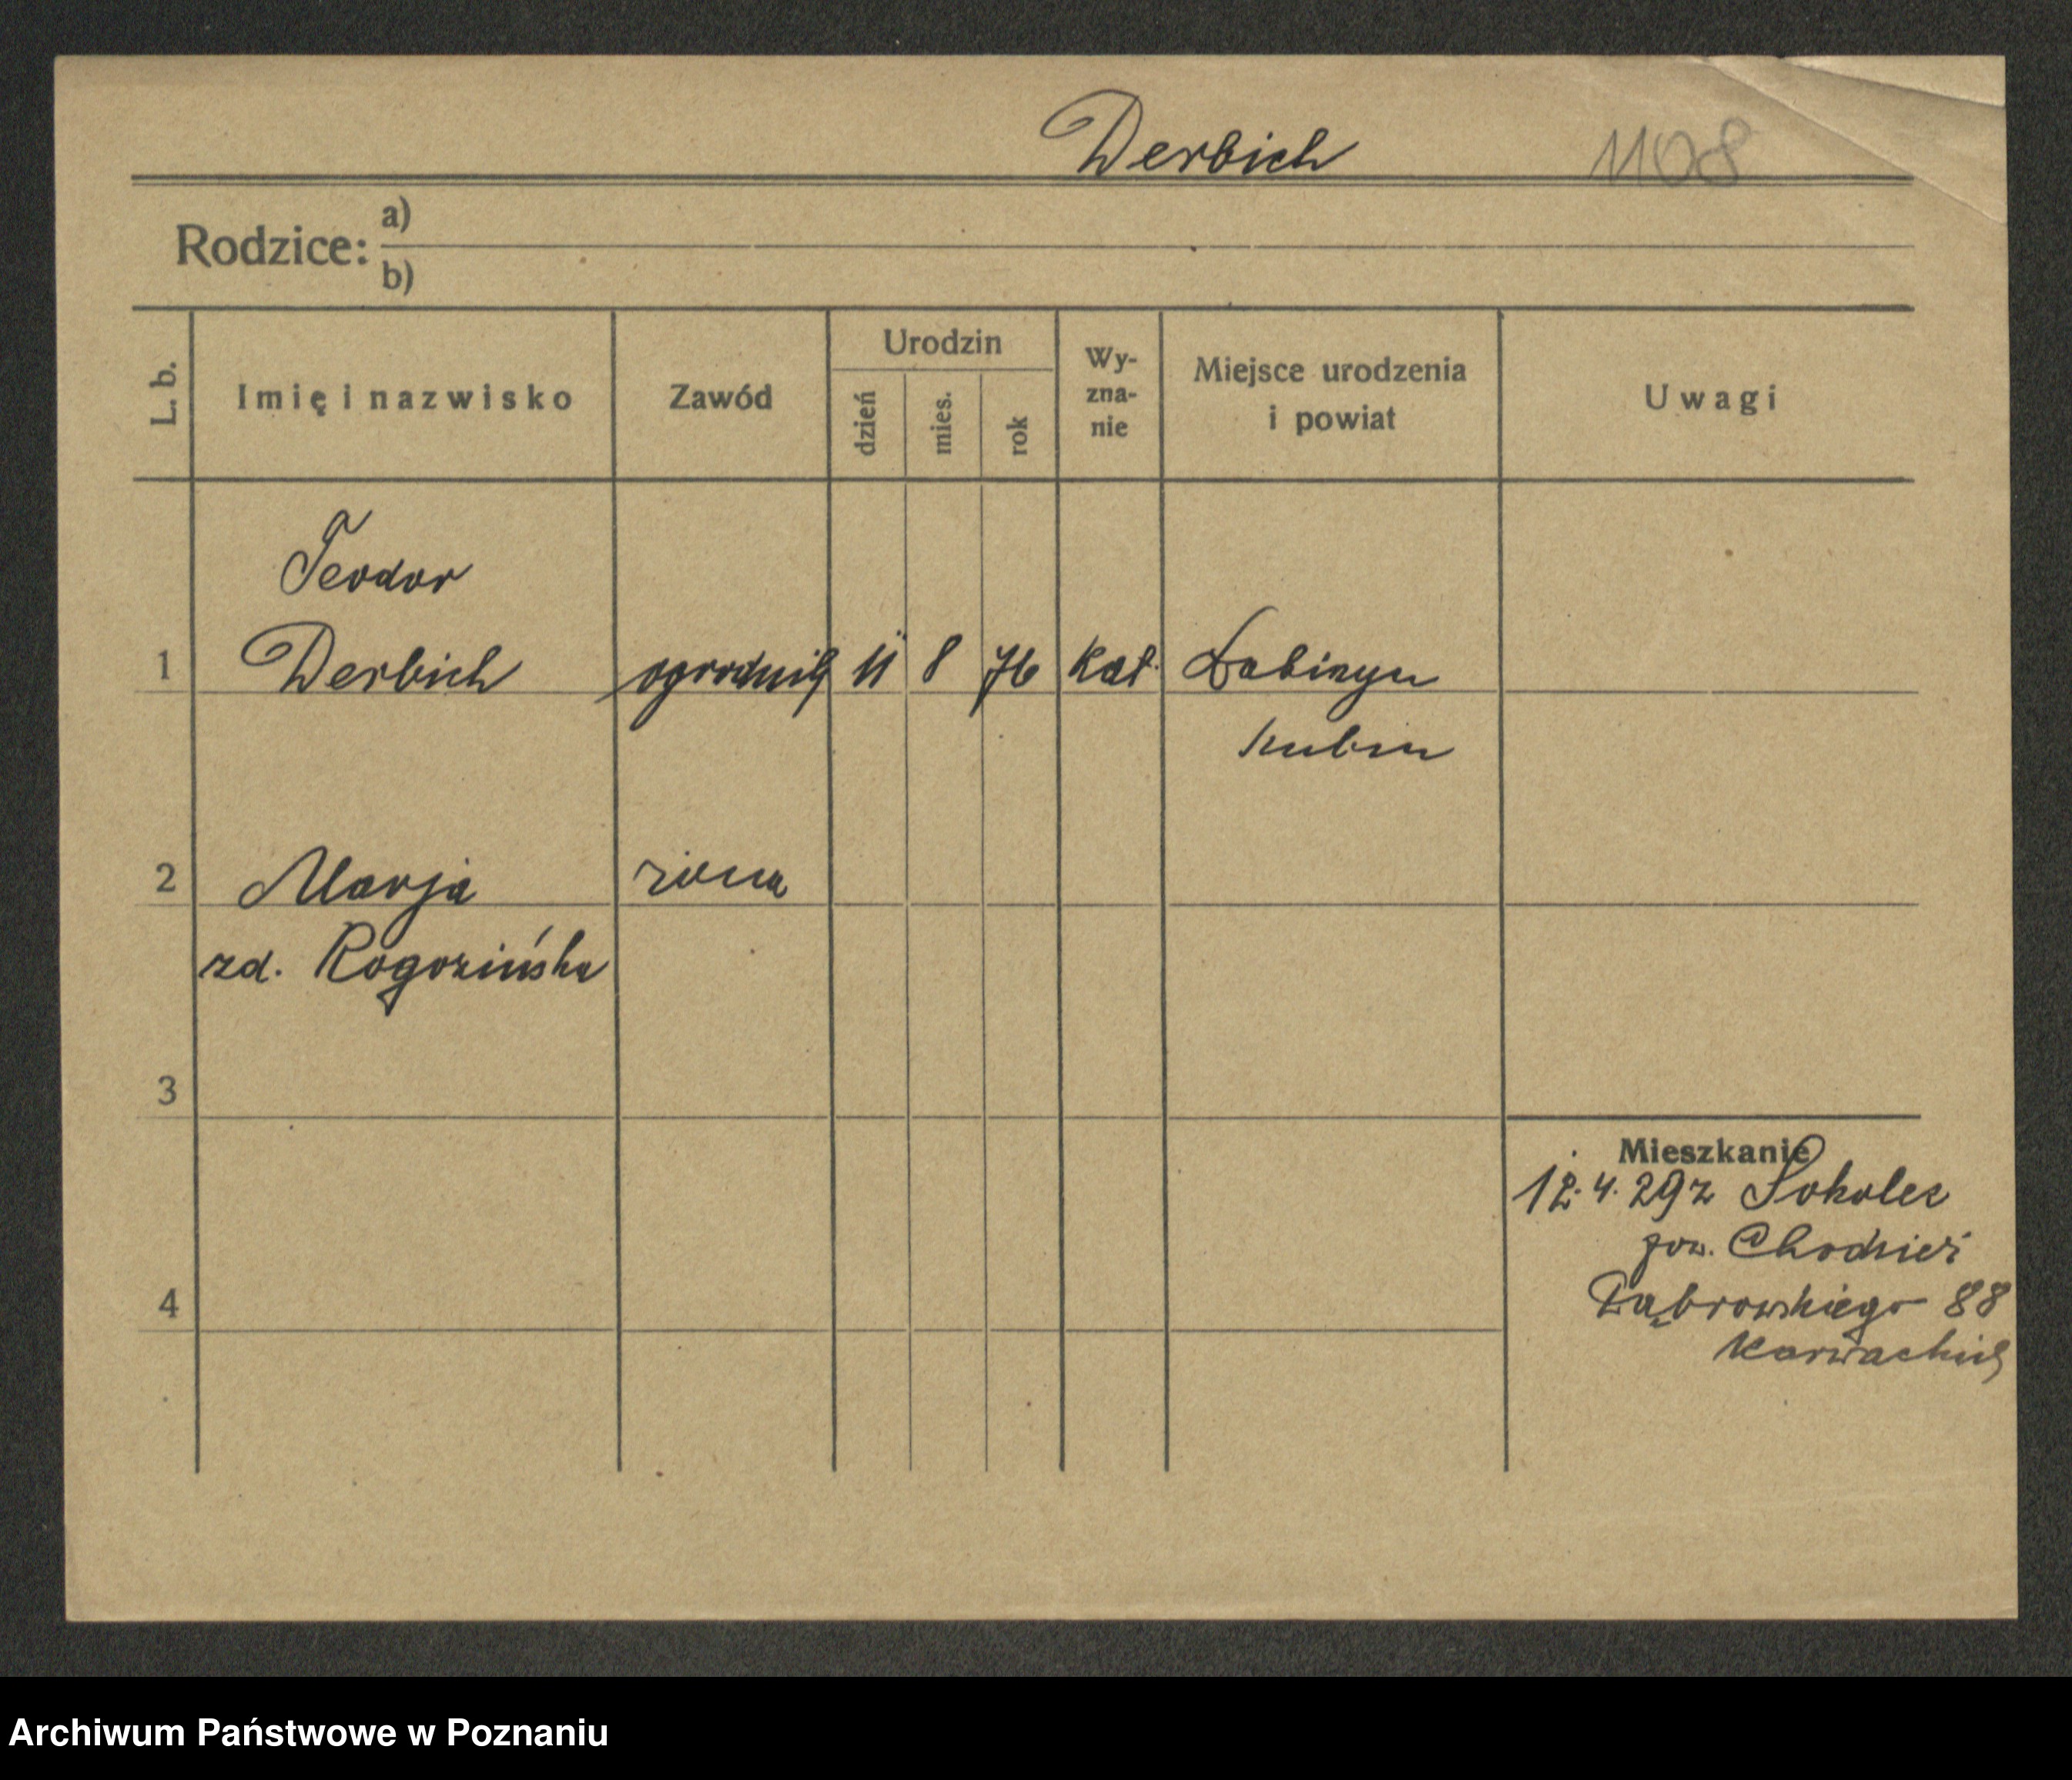 Derbich 1108
Rodzice: a)
b)
L. b. Imię i nazwisko Zawód Urodzin dzień mies. rok Wy-zna-nie Miejsce urodzenia i powiat Uwagi
Teodor
1 Derbich ogrodnik 11 8 76 kat.
2 Marja żona
zd. Rogozińska
3
Mieszkanie
12.4.29 z Sokolec
pow. Chodzież
4 Dąbrowskiego 88
Archiwum Państwowe w Poznaniu